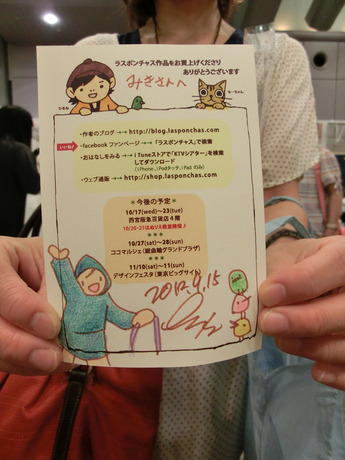 ラスポンチャス作品をお買上げくださり
ありがとうございます
みきさんへ
ひるね
・作者のブログ →→ http://blog.lasponchas.com
いいね!
・facebook ファンページ →→「ラスポンチャス」で検索
・おはなしをみる →→ i Tuneストアで「KTVシアター」を検索
してダウンロード
(iPhone、iPodタッチ、iPad のみ)
・ウェブ通販 →→ http://shop.lasponchas.com
＊今後の予定＊
10/17(wed)〜23(tue)
西宮阪急百貨店４階
＊＊＊
10/27(sat)〜28(sun)
ココマルシェ(阪急グランドプラザ)
＊＊＊
11/10(sat)〜11(sun)
デザインフェスタ(東京ビッグサイト)
2012.9.15